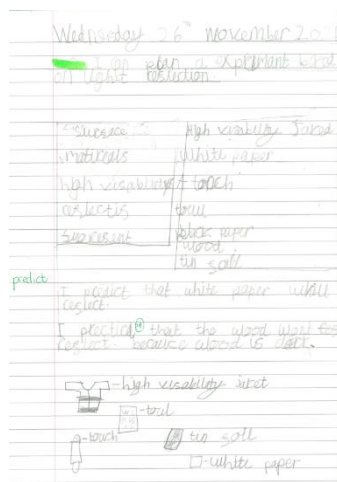 Wednesday 26th November 202
I can plan a expriment based
on light reslection.
surface
materials
high visability
reslectis
High visability Jaket
White paper
touch
towl
black paper
wood
tin soll
predict
I predict that white paper will
reslect.
I predict that the wood wont
reslect. because wood is dark.
-high visability jaket
-towl
-touch
tin soll
-white paper